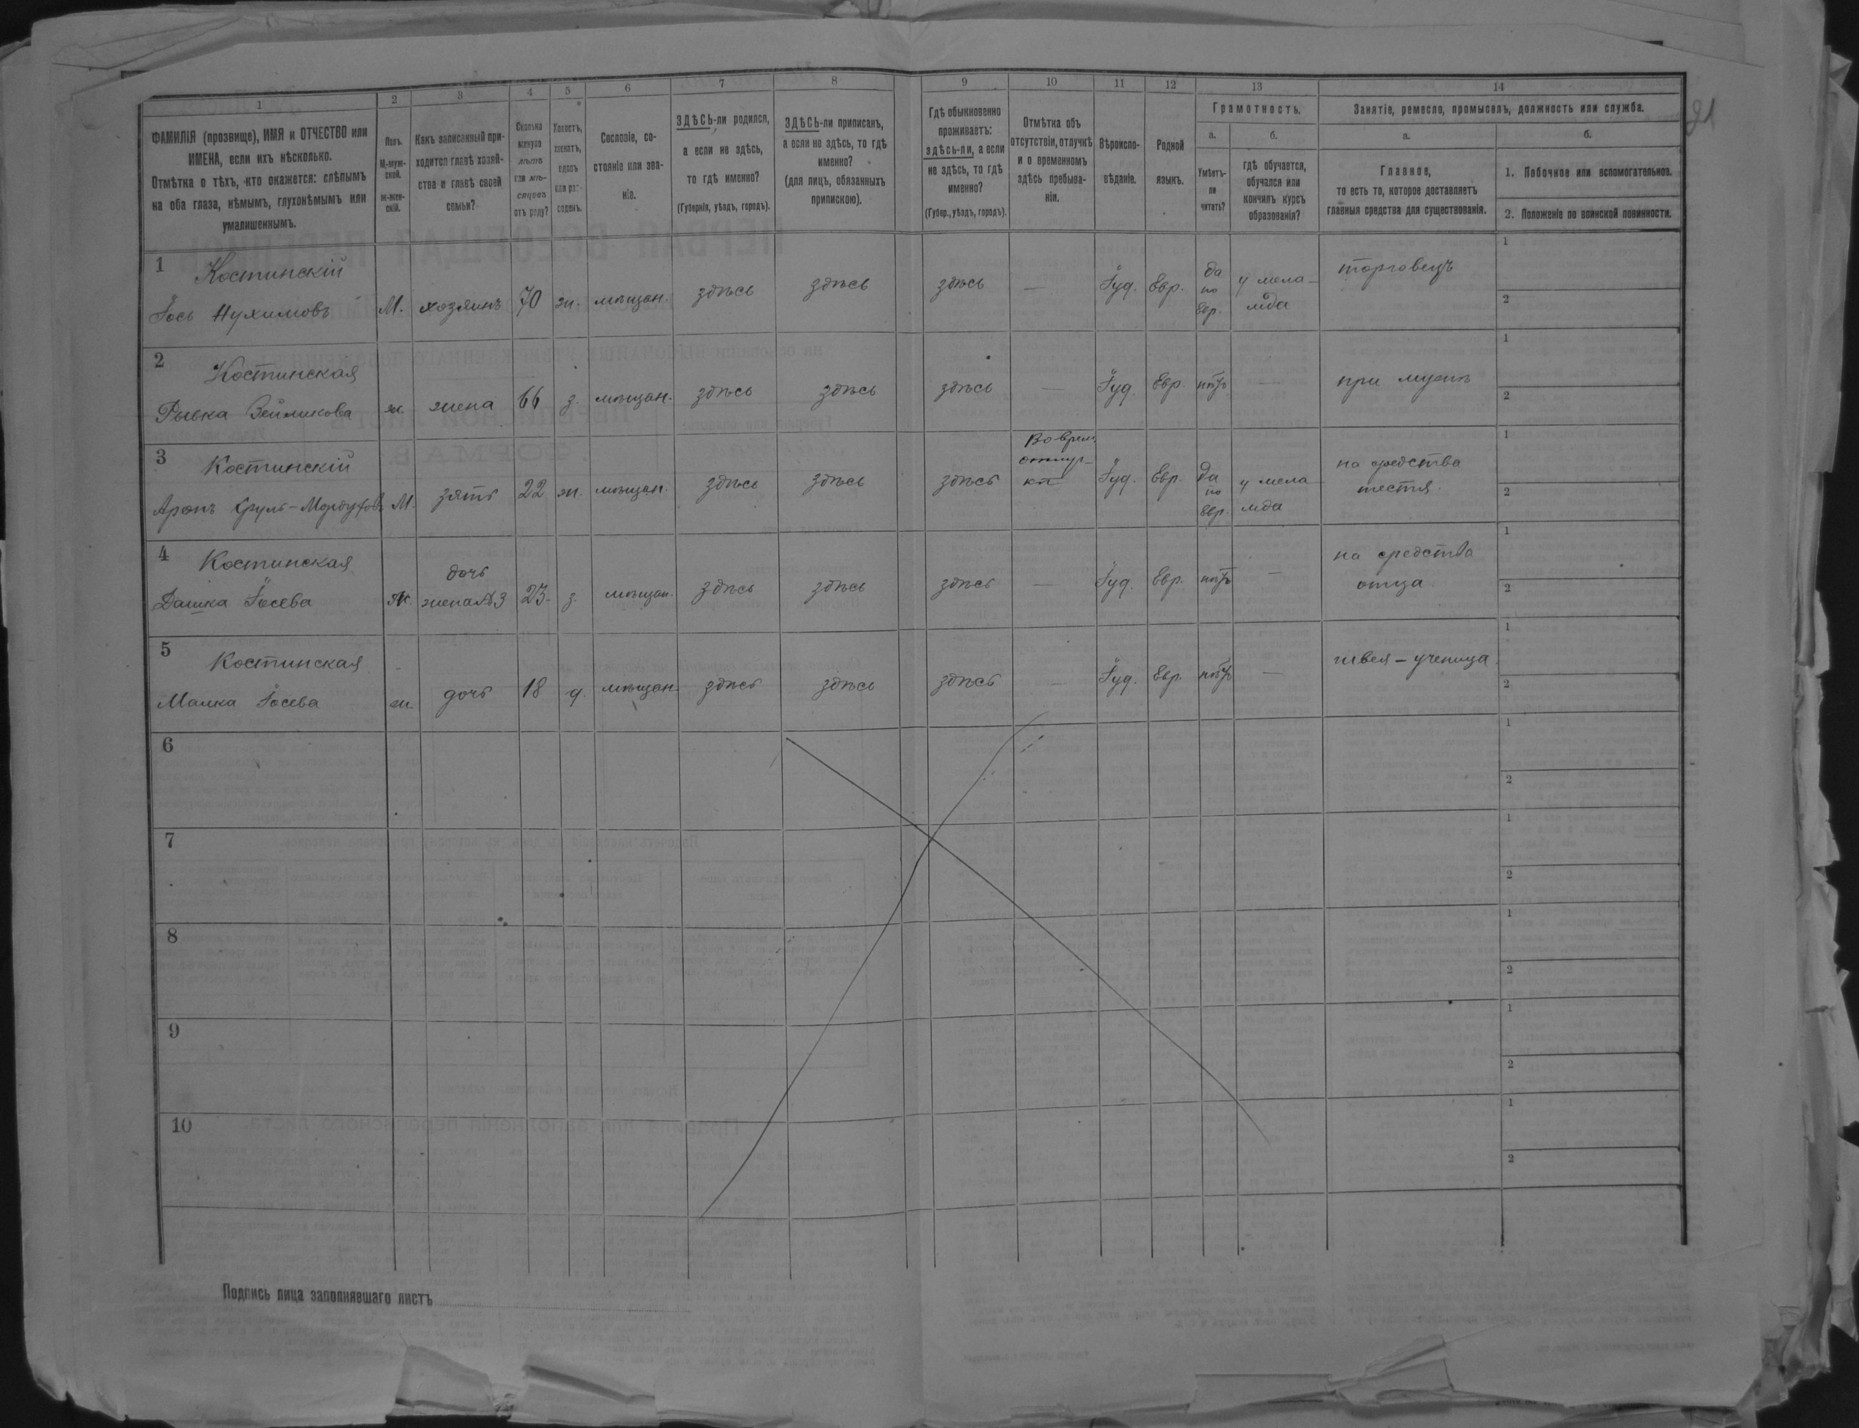 1 2 3 4 5 6 7 8 9 10 11 12 13 14
ФАМИЛІЯ (прозвище), ИМЯ и ОТЧЕСТВО или
ИМЕНА, если ихъ нѣсколько.
Отмѣтка о тѣхъ, кто окажется: слѣпымъ
на оба глаза, нѣмымъ, глухонѣмымъ или
умалишеннымъ.
Полъ.
М-муж-
ской.
Ж-жен-
скій.
Какъ записанный при-
ходится главѣ хозяй-
ства и главѣ своей
семьи?
Сколько
минуло
лѣтъ
или мѣ-
сяцевъ
отъ роду?
Холостъ,
женатъ,
вдовъ
или раз-
веденъ.
Сословіе, со-
стояніе или зва-
ніе.
ЗДѢСЬ-ли родился,
а если не здѣсь,
то гдѣ именно?
(Губернія, уѣздъ, городъ).
ЗДѢСЬ-ли приписанъ,
а если не здѣсь, то гдѣ
именно?
(для лицъ, обязанныхъ
припискою).
Гдѣ обыкновенно
проживаетъ:
здѣсь-ли, а если
не здѣсь, то гдѣ
именно?
(Губер., уѣздъ, городъ).
Отмѣтка объ
отсутствіи, отлучкѣ
и о временномъ
здѣсь пребыва-
ніи.
Вѣроиспо-
вѣданіе.
Родной
языкъ.
Грамотность.
а.
Умѣетъ-
ли
читать?
б.
гдѣ обучается,
обучался или
кончилъ курсъ
образованія?
Занятіе, ремесло, промыселъ, должность или служба.
а.
Главное,
то есть то, которое доставляетъ
главныя средства для существованія.
б.
1. Побочное или вспомогательное.
2. Положеніе по воинской повинности.
1 Костинскій
Іось Нухимовъ М. хозяинъ 70 ж. мѣщан. здѣсь здѣсь здѣсь — Іуд. Евр. да по Евр. у мела-
мда торговецъ 1
2
2 Костинская
Рывка Зейликова ж. жена 66 з. мѣщан. здѣсь здѣсь здѣсь — Іуд. Евр. нѣтъ — при мужѣ 1
2
3 Костинскій
Аронъ М. зять 22 ж. мѣщан. здѣсь здѣсь здѣсь Во врем.
отлуч-
кѣ Іуд. Евр. да по Евр. у мела
мда на средства
тестя 1
2
4 Костинская
Дашка Іосева ж. дочь
жена №3 23. з. мѣщан. здѣсь здѣсь здѣсь — Іуд. Евр. нѣтъ — на средства
отца 1
2
5 Костинская
Малка Іосева ж. дочь 18 д. мѣщан. здѣсь здѣсь здѣсь — Іуд. Евр. нѣтъ — швея - ученица 1
2
6 1
2
7 1
2
8 1
2
9 1
2
10 1
2
Подпись лица заполнявшаго листъ